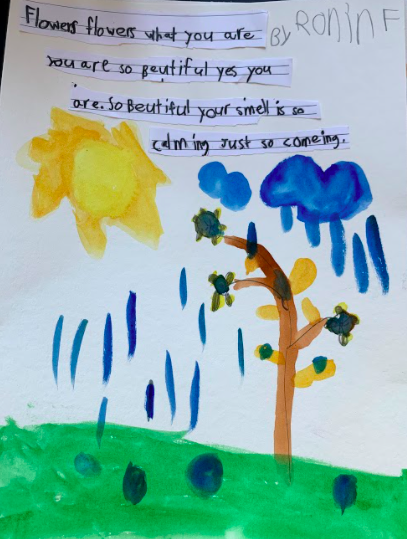 Flowers flowers what you are
By Ronin F
you are so Beutiful yes you
are. So Beutiful your smell is so
calming Just so comeing.